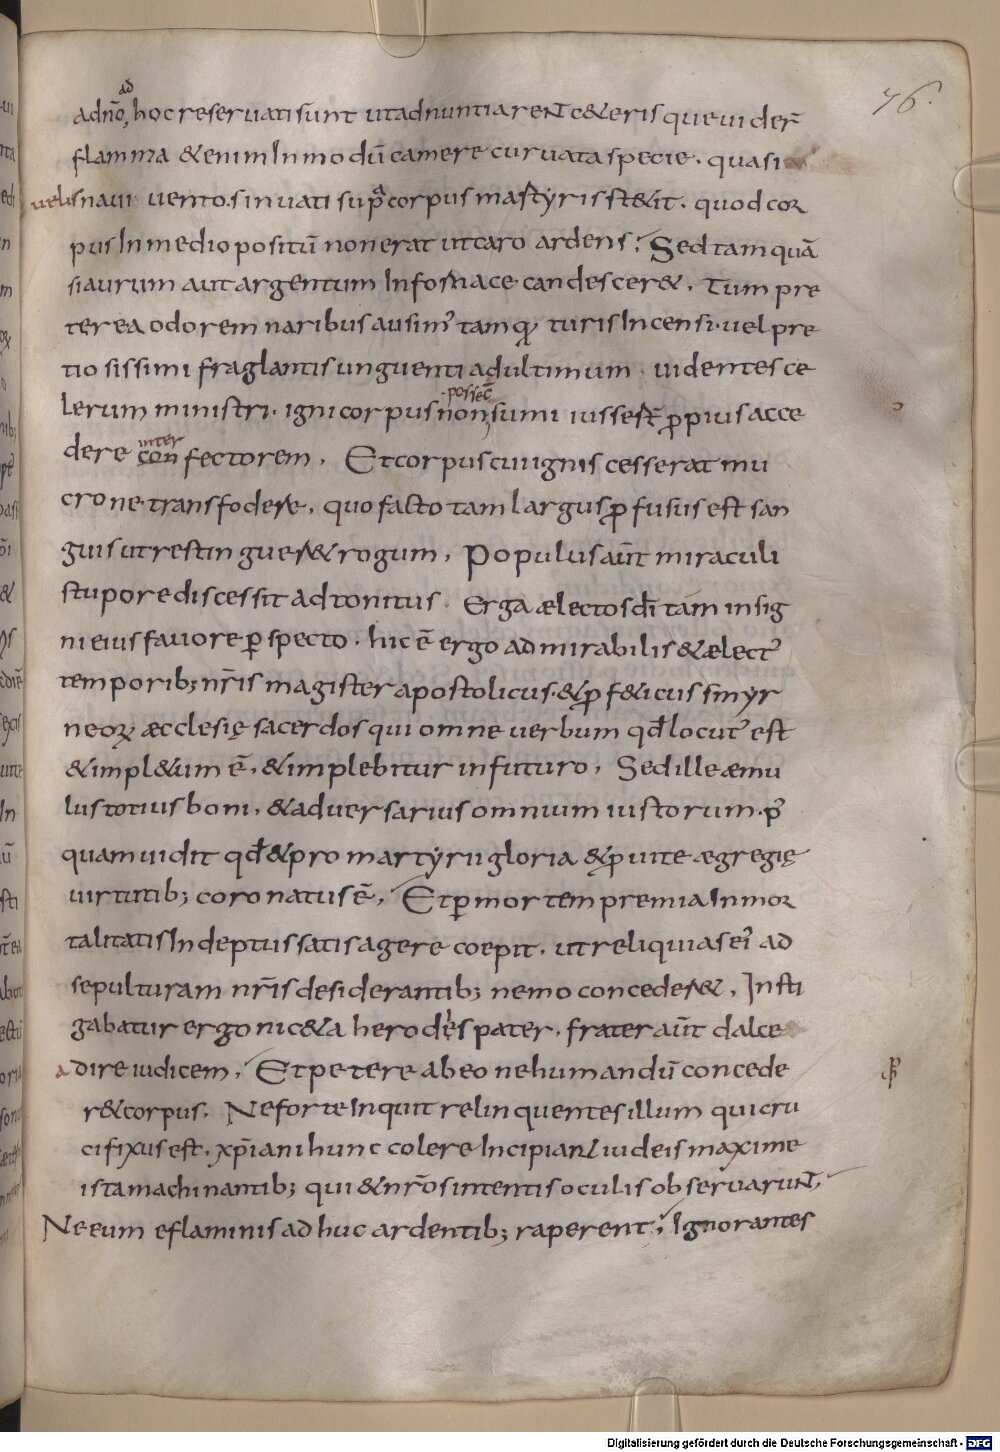 76.
ad
adnõ, hoc reseruati sunt ut adnuntiareNt c&eris que uider̃
flamma &enim In modũ camere curuata specie. quasi
uelis naui uento. sinuati sup̃a corpus martyris st&it. quod cor
pus In medio positũ non erat ut caro ardens; Sed tamquã
si aurum aut argentum In fornace candescer&. Tum pre
terea odorem naribus ausim᾽ tamq; turis Incensi. uel pre
tiosissimi fraglantis unguenti ad ultimum. uidentes ce
lerum ministri. igni corpus non sumi iusseſt ꝓpius acce
possec̃
dere confectorem. Et corpus cui ignis cesserat mu
inter
crone transfodere. quo facto tam largus ꝓfusus est san
guis ut restinguer& rogum. Populus aũt miraculi
stupore discessit adtonitus. Erga ælectos dĩ tam insig
ni eius fauore ꝑspecto. hic ẽ ergo admirabilis & ælect᾽
temporib; nr̃is magister apostolicus. & ꝓf&icus smyr
neoꝝ æcclesię sacerdos qui omne uerbum qd̃ locut᾽ est
& impl&um ẽ, & implebitur in futuro. Sed ille æmu
lus totius boni. & aduersarius omnium iustorum. p᾽
quam uidit qd̃ & pro martyrii gloria & ꝓ uite ægregię
uirtutib; coronatus ẽ. Et ꝑ mortem premia Inmor
talitatis Indeptus satis agere coepit. ut reliquias ei᾽ ad
sepulturam nr̃is desiderantib; nemo conceder&. Insti
gabatur ergo nic&a herodes pater. frater aũt dalce
adire iudicem. Et petere ab eo ne humandũ concede
r& corpus. Ne forte Inquit relinquentes illum qui cru
cifixus est. xp̃iani hunc colere IncipiaNt iudeis maxime
ista machinantib; qui & nr̃os intentis oculis obseruaruNt
Ne eum e flaminis adhuc ardentib; raperent. Ignorantes
Digitalisierung gefördert durch die Deutsche Forschungsgemeinschaft - DFG